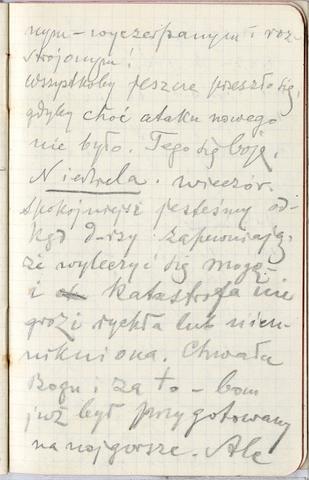 nym – wyczerpanym i roz-
strojonym!
Wszystkoby jeszcze przeszło się,
gdyby choć ataku nowego
nie było. Tego się boję.
Niedziela. wieczór.
Spokojniejsi jesteśmy od-
kąd d-rzy zapewniają,
że wyleczyć się mogę –
i katastrofa nie
grozi rychła lub nieu-
nikniona. Chwała
Bogu i za to – bom
już był przygotowany
na najgorsze. Ale